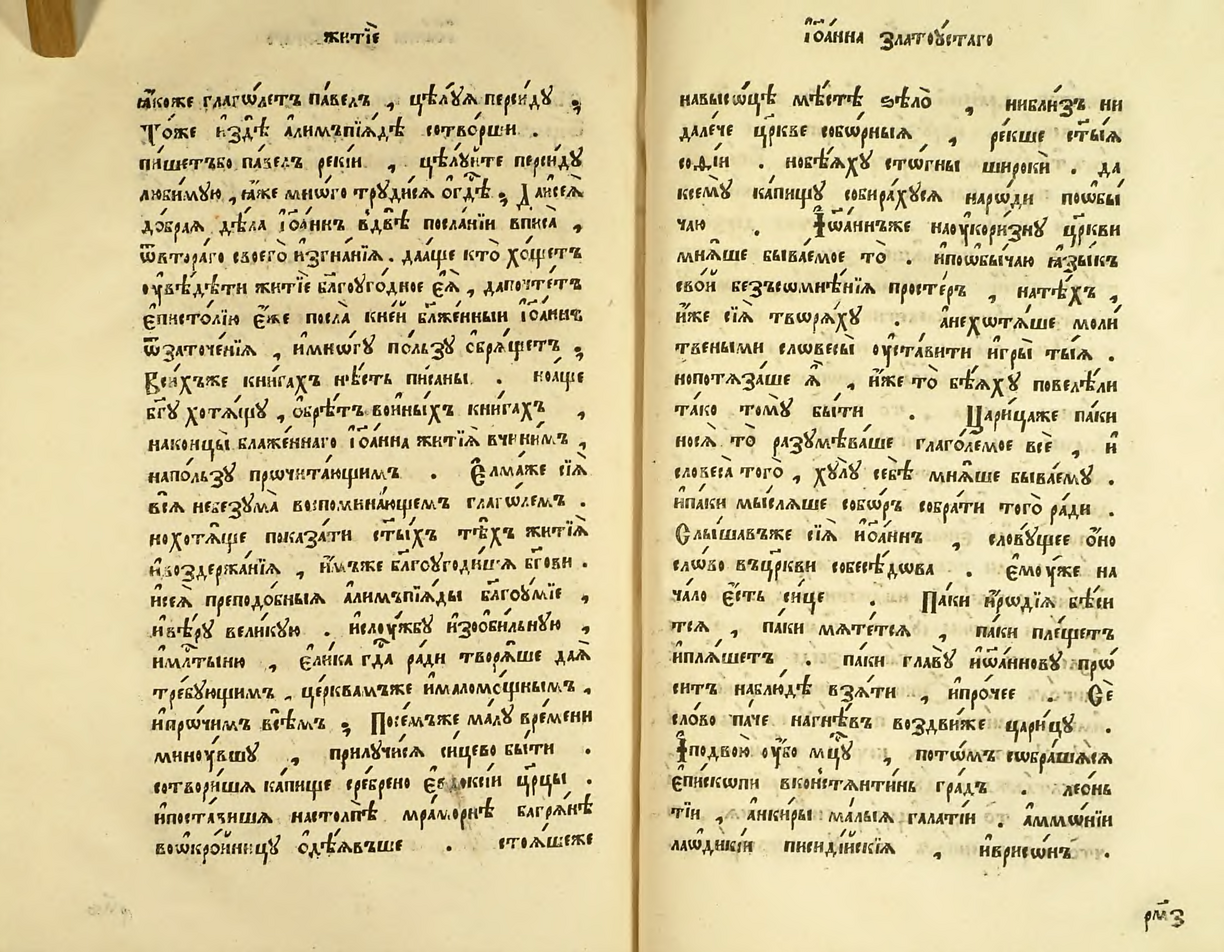 житїѐ
ꙗ҆́коже глаго́летъ па́велъ , цѣлꙋ́ѧ перси́дꙋ ;
То́же и҆здѣ̀ а҆лимъпїѧ́дѣ сотво́рши .
пи́шетъбо па́велъ рекі́и , цѣлꙋ́йте перси́дꙋ
люби́мꙋю , ꙗ҆́же мнѡ́го трꙋди́сѧ ѻ҆гдѣ̀ ; Даисеѧ̀
дѡ́браѧ дѣ́ла і҆ѡа́ннъ вдвѣ̀ посла́нїи вписа̀ ,
ѿвтора́го своегѡ̀ и҆згна́нїѧ . даа҆́ще кто̀ хо́щетъ
ᲂу҆вѣ́дѣти житїѐ бл҃гоꙋго́дное є҆ѧ̀ , дапочте́тъ
є҆писто́лїю є҆́же посла̀ кне́й бл҃же́нныи і҆ѡа́ннъ
ѿзаточе́нїѧ , и҆мнѡ́гꙋ по́льзꙋ ѡ҆брѧ́щетъ ;
Вси́хъже кни́гахъ нѣ́сть пи́саны . ноа҆́ще
бг҃ꙋ хотѧ́щꙋ , ѻ҆брѣ́тъ во и҆ны́хъ кни́гахъ ,
наконцы̀ блаже́ннаго і҆ѡа́нна житїѧ̀ вчини́мъ ,
напо́льзꙋ прѡчита́ющимъ . Е҆лма́же сїѧ̀
всѧ̀ небезꙋма̀ воспомина́ющемъ глаго́лемъ .
нохотѧ́ще показа́ти ст҃ы́хъ тѣ́хъ житїѧ̀
и҆воздержа́нїѧ , и҆́мъже бл҃гоꙋгоди́шѧ бг҃ови .
и҆сеѧ̀ преподо́бныѧ а҆лимъпїѧ́ды бл҃гоꙋ́мїе ,
и҆вѣ́рꙋ вели́кꙋю . и҆слꙋ́жбꙋ и҆зѻби́льнꙋю ,
и҆мл҃тыню , є҆ли́ка гд҃а ра́ди творѧ́ше даѧ̀
тре́бꙋющимъ , це́рквамъже и҆маломо́щнымъ ,
и҆прѡ́чимъ всѣ́мъ ; Посе́мъже ма́лꙋ вре́мени
минꙋ́вшꙋ , прилꙋчи́сѧ си́цево бы́ти .
сотвори́шѧ ка́пище сре́брено є҆вдоксі́и цр҃цы .
и҆поста́вишѧ настолпѣ̀ мра́морнѣ багрѧ́нѣ
воѡ҆кро́йницꙋ ѻ҆дѣ́ѧвъше . стоѧ́шеже
і҆ѡа́нна златоꙋ́стаго
навысѡ́цѣ мѣ́стѣ ѕѣлѡ̀ , нибли́зъ ни
дале́че цр҃кве собѡ́рныѧ , ре́кше ст҃ы́ѧ
софі́и . нобѣ́ѧхꙋ стѡ́гны широкѝ . да
ксемꙋ̀ ка́пищꙋ собира́хꙋсѧ нарѡ́ди поѡбы
ча́ю . І҆ѡа́ннъже наꙋкори́знꙋ цр҃кви
мнѧ́ше быва́емое то̀ . и҆поѡбы́чаю ꙗ҆зы́къ
сво́й безъсѡмнѣ́нїѧ просте́ръ , натѣ́хъ ,
и҆́же сїѧ̀ творѧ́хꙋ . а҆нехотѧ́ше моли
твеными словесы̀ ᲂу҆ста́вити и҆гры̀ ты́ѧ .
нопотѧза́ше ѧ҆̀ , и҆́же то̀ бѣ́ѧхꙋ повелѣ́ли
та́ко томꙋ̀ бы́ти . Цари́цаже па́ки
носѧ̀ то̀ разꙋмѣва́ше глаго́лемое всѐ , и҆
словеса̀ того̀ , хꙋлꙋ̀ себѣ̀ мнѧ́ше быва́емꙋ .
и҆па́ки мы́слѧше собѡ́ръ собра́ти того̀ ра́ди .
Слы́шавъже сїѧ̀ и҆ѡа́ннъ , словꙋ́щее ѻ҆́но
сло́во въцр҃кви собесѣ́дѡва . є҆мꙋ́же на
ча́ло є҆́сть си́це . Па́ки и҆рѡдїѧ́ бѣси́
тсѧ , па́ки мѧте́тсѧ , па́ки пле́щетъ
и҆плѧ́шетъ . па́ки главꙋ̀ и҆ѡа́нновꙋ прѡ́
ситъ наблю́дѣ взѧ́ти , и҆про́чее . Сѐ
сло́во па́че нагнѣ́въ воздви́же цари́цꙋ .
І҆подвою̀ ᲂу҆́бо мц҃ꙋ , пото́мъ сѡбра́шѧсѧ
є҆пи́скопи вконстѧнти́нь гра́дъ . лео́нь
ті́и , а҆нкиры̀ ма́лыѧ галаті́и . а҆ммѡні́и
лаѡдикі́и писиді́йскїѧ , и҆врисѡ́нъ .
рм҃з